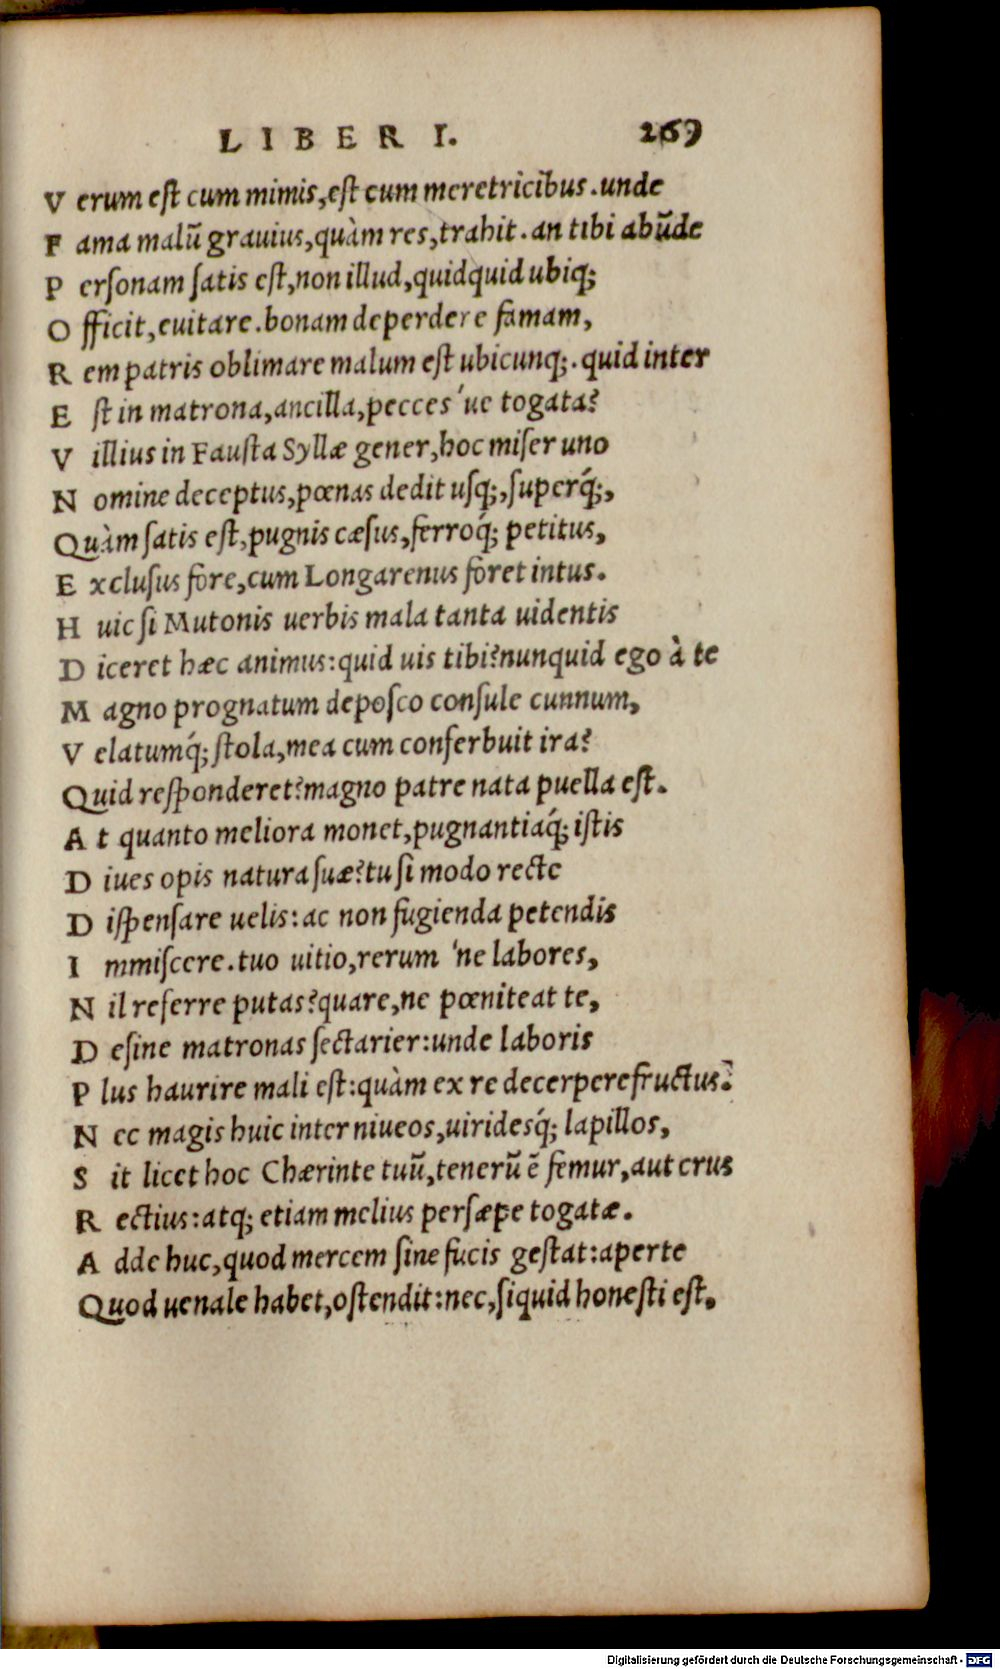 LIBER I. 269
V erum est cum mimis, est cum meretricibus. unde
F ama malũ grauius, quàm res, trahit. an tibi abũde
P ersonam satis est, non illud, quidquid ubiq;
O fficit, euitare. bonam deperdere famam,
R em patris oblimare malum est ubicunq;. quid inter
E st in matrona, ancilla, pecces 'ue togata?
V illius in Fausta Syllæ gener, hoc miser uno
N omine deceptus, pœnas dedit usq;, superq́;,
Quàm satis est, pugnis cæsus, ferroq́; petitus,
E xclusus fore, cum Longarenus foret intus.
H uic si Mutonis uerbis mala tanta uidentis
D iceret hæc animus: quid uis tibi? nunquid ego à te
M agno prognatum deposco consule cunnum,
V elatumq́; stola, mea cum conferbuit ira?
Quid responderet? magno patre nata puella est.
A t quanto meliora monet, pugnantiaq́; istis
D iues opis natura suæ? tu si modo recte
D ispensare uelis: ac non fugienda petendis
I mmiscere. tuo uitio, rerum 'ne labores,
N il referre putas? quare, ne pœniteat te,
D esine matronas sectarier: unde laboris
P lus haurire mali est: quàm ex re decerpere fructus?
N ec magis huic inter niueos, uiridesq́; lapillos,
S it licet hoc Chærinte tuũ, tenerũ ẽ femur, aut crus
R ectius: atq; etiam melius persæpe togatæ.
A dde huc, quod mercem sine fucis gestat: aperte
Quod uenale habet, ostendit: nec, siquid honesti est,
Digitalisierung gefördert durch die Deutsche Forschungsgemeinschaft - DFG